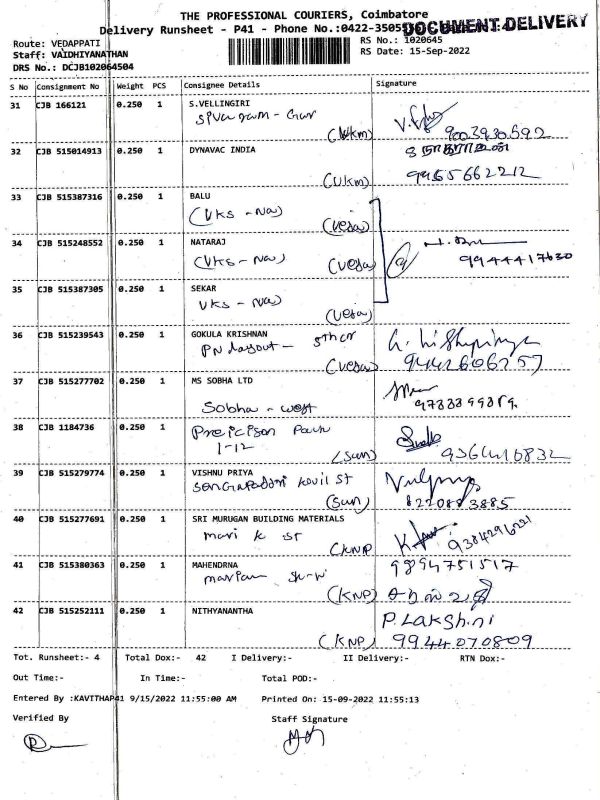 THE PROFESSIONAL COURIERS, Coimbatore
DOCUMENT DELIVERY
Delivery Runsheet - P41 - Phone No.:0422-3505
Route: VEDAPPATI
RS No.: 1020645
Staff: VAIDHIYANATHAN
RS Date: 15-Sep-2022
DRS No.: DCJB102064504
S No Consignment No Weight PCS Consignee Details Signature
31 CJB 166121 0.250 1 S.VELLINGIRI
(Vkm)
32 CJB 515014913 0.250 1 DYNAVAC INDIA
நாகராஜன்
(Vkm) 9965662212
33 CJB 515387316 0.250 1 BALU
(VKS - Na)
(Veda)
34 CJB 515248552 0.250 1 NATARAJ
(VKS - Na) (Veda) 9944417630
35 CJB 515387305 0.250 1 SEKAR
VKS - Na)
(Veda)
36 CJB 515239543 0.250 1 GOKULA KRISHNAN
PN layout - 5th cr
(Veda) 9442606257
37 CJB 515277702 0.250 1 MS SOBHA LTD
Sobha - west
38 CJB 1184736 0.250 1 Precicison Park
1-12
(Sun) 9364416832
39 CJB 515279774 0.250 1 VISHNU PRIYA
Kovil st
(Sun) 8220883885
40 CJB 515277691 0.250 1 SRI MURUGAN BUILDING MATERIALS
mari k st
(KNP) 9384296221
41 CJB 515380363 0.250 1 MAHENDRNA 9894751517
(KNP)
42 CJB 515252111 0.250 1 NITHYANANTHA P. Lakshmi
(KNP) 9944070809
Tot. Runsheet:- 4 Total Dox:- 42 I Delivery:- II Delivery:- RTN Dox:-
Out Time:- In Time:- Total POD:-
Entered By :KAVITHAP41 9/15/2022 11:55:00 AM Printed On: 15-09-2022 11:55:13
Verified By Staff Signature